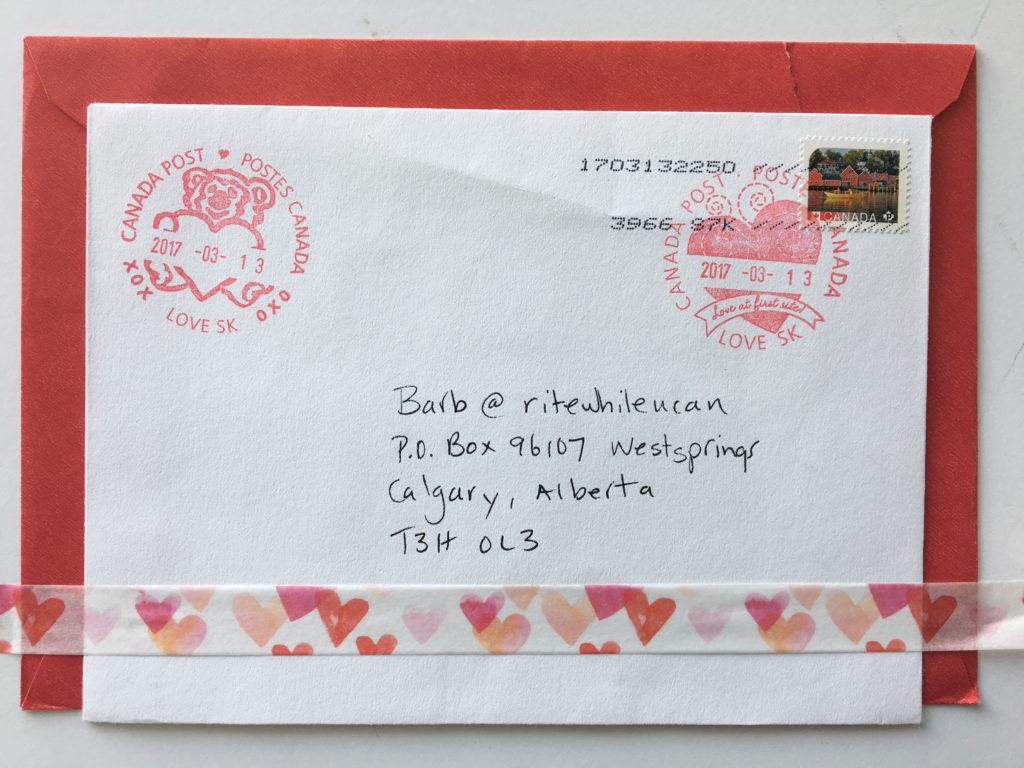 CANADA POST ♥ POSTES CANADA
2017 -03- 13
XOX
OXO
LOVE SK
1703132250
3966 97K
CANADA POST · POSTES CANADA
2017 -03- 13
Love at first site!
LOVE SK
CANADA P
Barb @ ritewhileucan
P.O. Box 96107 Westsprings
Calgary, Alberta
T3H 0L3